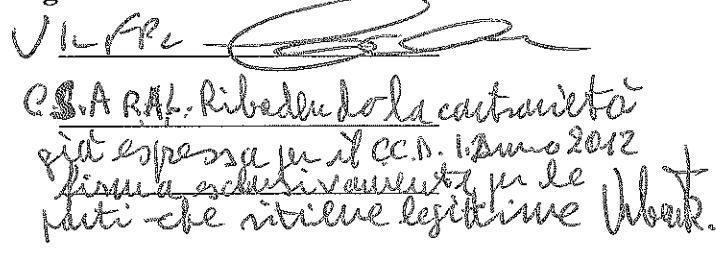 UIL FPL
C.S.A RAL. Ribadendo la contrarietà
già espressa per il CC.D.I. Anno 2012
firma esclusivamente per le
parti che ritiene legittime